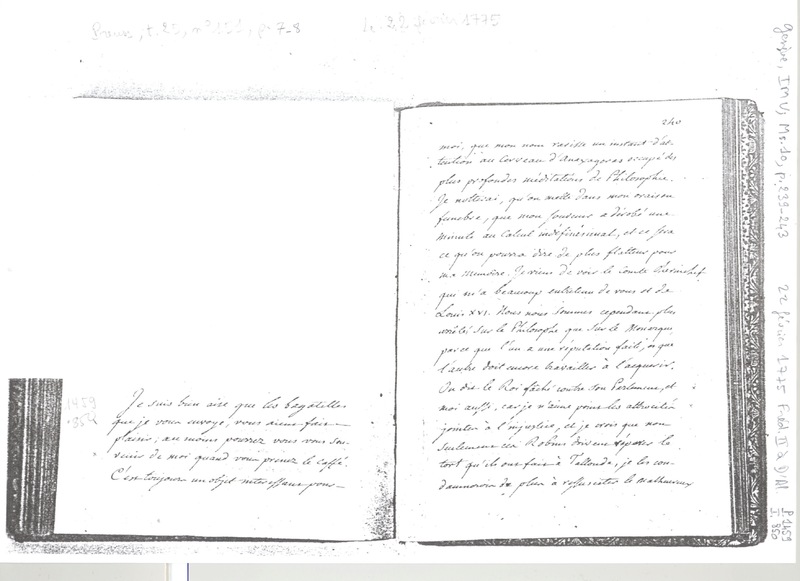 Preuss, t. 25, n° 151, p. 7-8
Le 22 février 1775
Genève, IMV, Ms. 10, p. 239-243
22 février 1775 Fréd. II à D'Al
P 1459
I. 350
1459
350
Je suis bien aise que les bagatelles
que je vous envoye, vous aient fait
plaisir, au moins pourrez vous vous sou-
venir de moi quand vous prenez le caffé.
C'est toujours un objet interessant pour
240
moi, que mon nom ravisse un instant d'at-
tention au Cerveau d'Anaxagoras occupé des
plus profondes méditations de Philosophie.
Je notterai, qu'on mette dans mon oraison
funebre, que mon souvenir a dérobé une
minute au Calcul indéfinésimal, et ce sera
ce qu'on pourra dire de plus flatteur pour
ma memoire. Je viens de voir le Comte
que m'a beaucoup entretenu de vous et de
Louis XVI. Nous nous sommes cependant plus
arrêtés sur le Philosophe que sur le Monarque
parce que l'un a une réputation faite, et que
l'autre doit encore travailler à l'acquerir.
On dit le Roi faché contre son Parlement, et
moi aussi, car je n'aime point les atrocités
jointes à l'injustice, et je crois que non
seulement ces Robins doivent réparer le
tort qu'ils ont fait à Tallonde, je les con-
damnerois de plus à ressusciter le malheureux